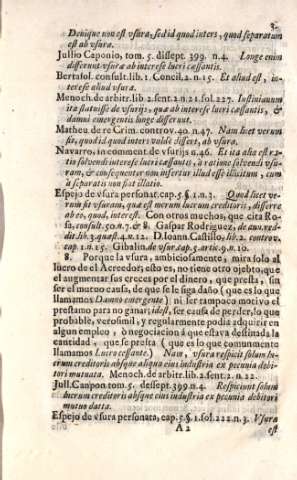 3
Denique non est vsura, sed id quod inters, quod separatum
est ab vsura.
Jullio Caponio, tom. 5. dissept. 399. n.4. Longe enim
differunt vsuræ ab interese lucri cæssantis.
Bertasol. consult. lib. 1. Concil. 2. n. 15. Et aliud est, in-
terese aliud vsura.
Menoch. de arbitr. lib. 2. sent. 2. 21. sol. 227. Iustinianum
ita statuisse de vsuris, quæ ab interese lucri cæssantis, &
damni emergentis longe differunt.
Matheu. de re Crim. controv. 40. n. 47. Nam licet verum
sit, quod id quod inters valdè differt, ab vsura.
Navarro, in coment. de vsurijs n. 46. Et ita alia est ra-
tio solvendi interese lucri cæssantis, à ratione solvendi vsu-
ram, & consequenter non insertur illud esse illicitum, cum
à separatis non fiat illatio.
Espejo de vsura personat. cap. 5. §. 1. n. 3. Quod licet ve-
rum sit vsuram, quæ est merum lucrum creditoris, differre
ab eo, quod, interest. Con otros muchos, que cita Ro-
sa, consult. 50. n. 7. & 8. Gaspar Rodriguez, de ann. red-
dit. lib. 3. quæst. 4. n. 12. D. Ioann. Castillo, lib. 2. controv.
cap. 1. n. 15. Gibalin. de vsur. cap. 5. artic. 9. n. 10.
8. Porque la vsura, ambiciosamente, mira solo al
lucro de el Acreedor, esto es, no tiene otro ojebto, que
el augmentar sus creces por el dinero, que presta, sin
ser el mutuo causa, de que se le siga daño (que es lo que
llamamos Damno emergente) ni ser tampoco motivo el
prestamo para no ganar; idest, ser causa de perder, lo que
probable, verosimil, y regularmente podia adquirir en
algun empleo, ò negociacion à que estava destinada la
cantidad, que se presta (que es lo que comunmente
llamamos Lucro cessante.) Nam, vsura respicit solum lu-
crum creditoris absque aliqua eius industria ex pecunia debi-
tori mutuata. Menoch. de arbitr. lib. 2. sent. 2. n. 22.
Jull. Canipon. tom. 5. dessept. 399 n. 4. Respiciunt solum
lucrum creditoris absque eius industria ex pecunia debitori
mutuo datta.
Espejo de vsura personata, cap. 5. §. 1. sol. 222. n. 3. Vsura
A 2 est